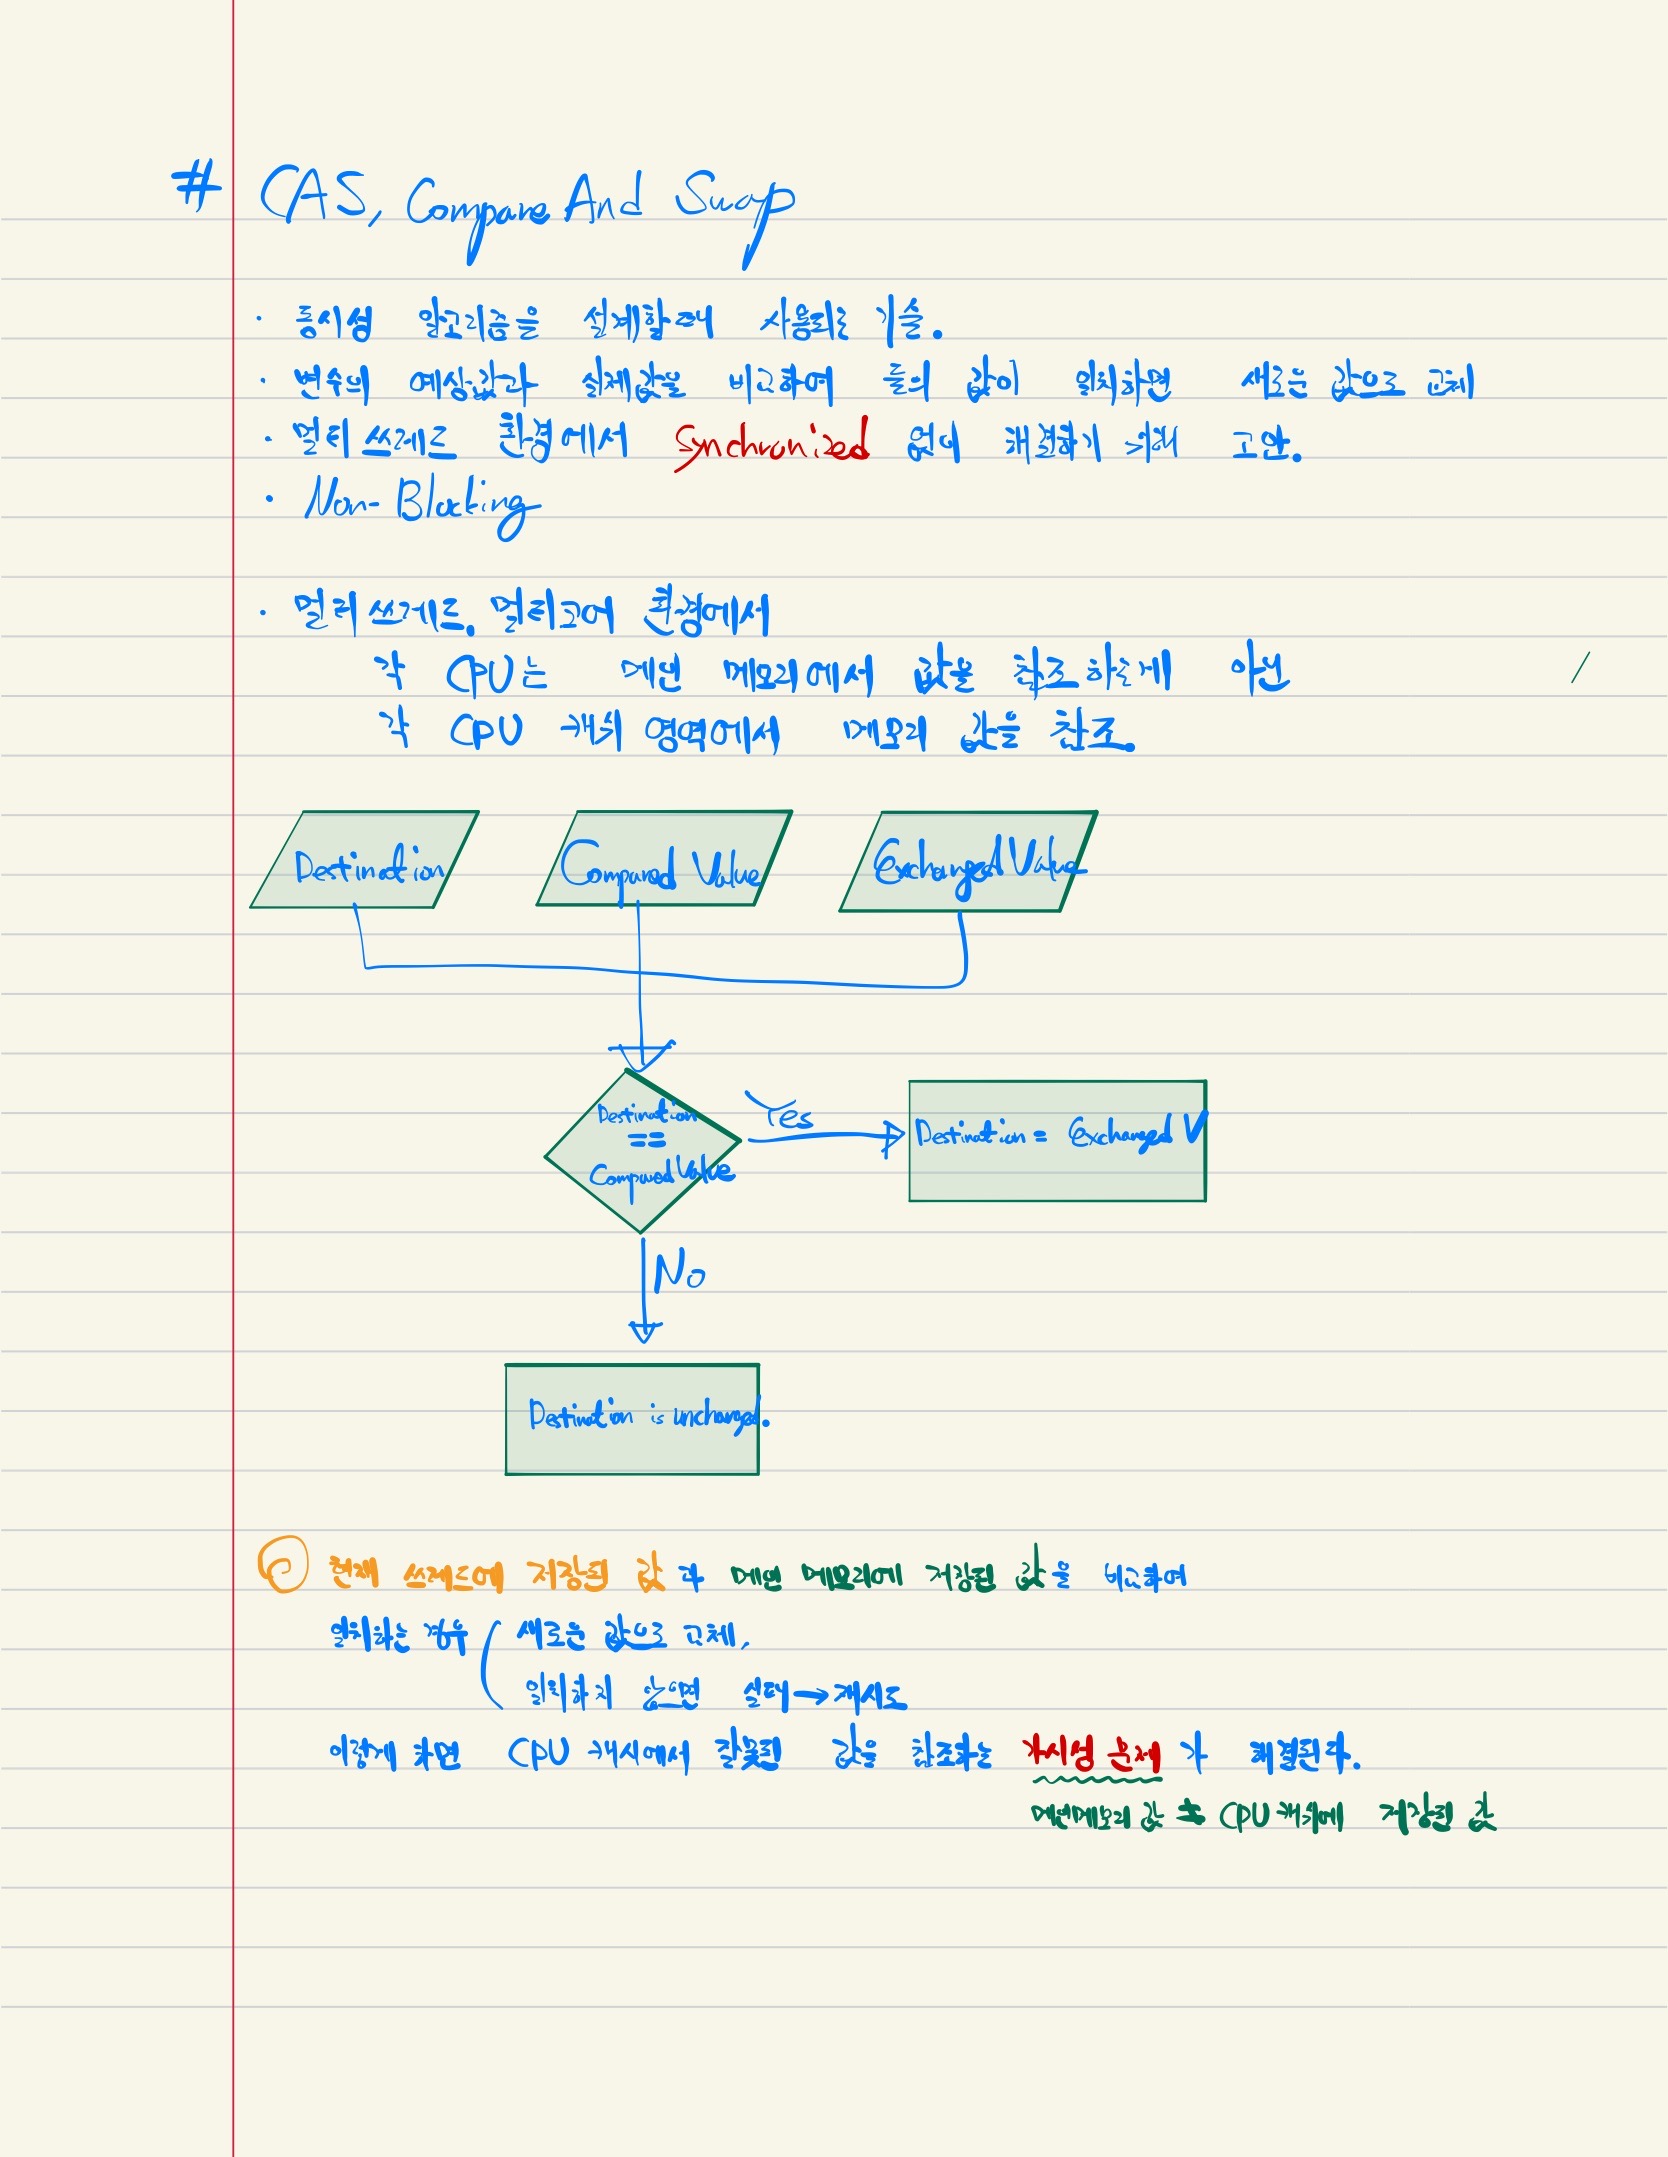 # CAS, Compare And Swap
· 동시성 알고리즘을 설계할때 사용되는 기술.
· 변수의 예상값과 실제값을 비교하여 둘의 값이 일치하면 새로운 값으로 교체
· 멀티 쓰레드 환경에서 Synchronized 없이 해결하기 위해 고안.
· Non-Blocking
· 멀티 쓰레드, 멀티코어 환경에서
각 CPU는 메인 메모리에서 값을 참조하는게 아닌
각 CPU 캐시 영역에서 메모리 값을 참조.
Destination
Compared Value
Exchanged Value
Destination
==
Compared Value
Yes
Destination = Exchanged V
No
Destination is unchanged.
현재 쓰레드에 저장된 값과 메인 메모리에 저장된 값을 비교하여
일치하는 경우 ( 새로운 값으로 교체,
일치하지 않으면 실패 → 재시도
이렇게 하면 CPU 캐시에서 잘못된 값을 참조하는 가시성 문제가 해결된다.
메인메모리 값 ≠ CPU 캐시에 저장된 값